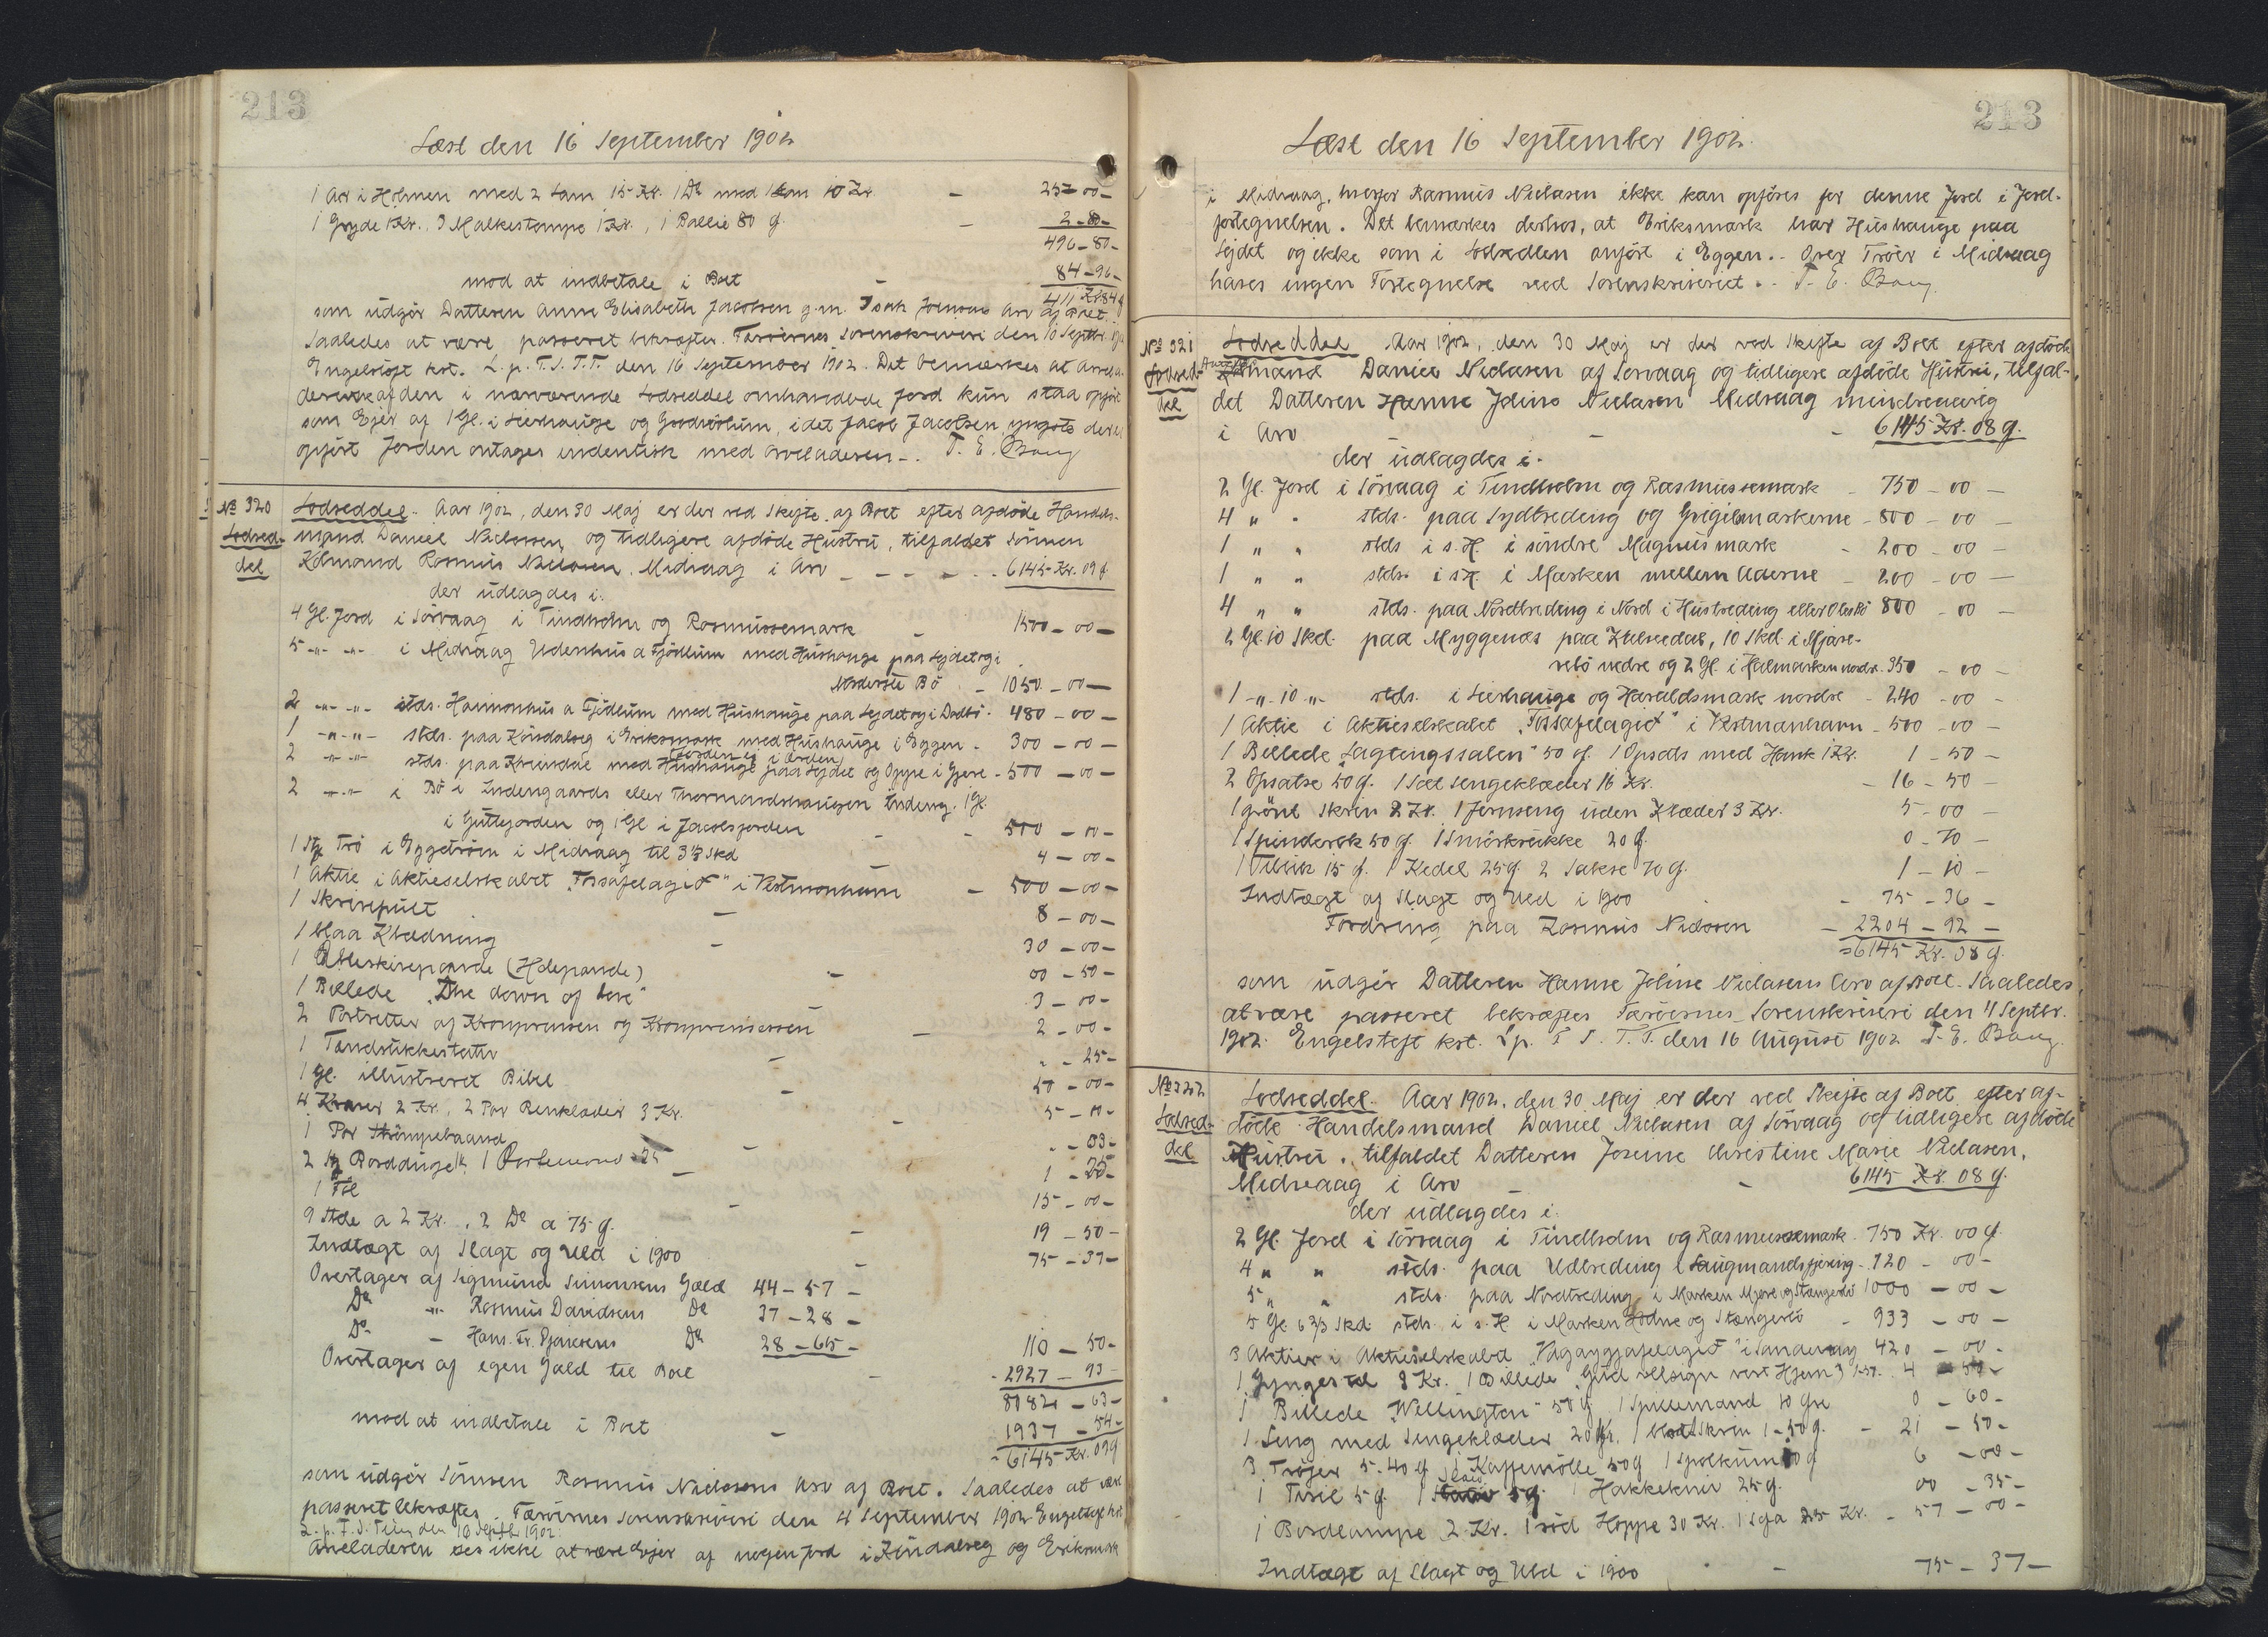 213
Læst den 16 September 1902
1 Aar i Holmen med 2 Lam 15 Kr. 1 Do med 1 Lam 10 Kr - 25 - 00 -
1 Gryde 1 Kr., 3 Malkestampe 1 Kr., 1 Ballie 80 Ø - 2 - 80 -
496 - 80 -
mod at indbetale i Boet - 84 - 96 -
411 Kr 84 Ø
som udgør Datteren Anne Elisabeth Jacobsen g. m. Isak Joensens Arv af Boet.
Saaledes at være passeret bekræfter. Færøernes Sorenskriveri den 10 Septbr.
Engelstoft kst. L. p. F. S. T. T. den 16 September 1902. Det bemærkes at Arvela-
deren af den i nærværende Lodseddel omhandlede Jord kun staa opført
som Ejer af 1 Gl. i Heimhauge og idet Jacob Jacobsen yngste derved
opført Jorden antages indentisk med Arveladeren -. T. E. Bang
No 320
Lodsed-
del
Lodseddel - Aar 1902, den 30 Maj er der ved Skifte af Boet efter afdøde Handels-
mand Daniel Niclassen, og tidligere afdøde Hustru, tilfaldet Sønnen
Købmand Rasmus Niclasen. Midvaag i Arv - - - - 6145 Kr. 09 Ø
der udlagdes i:
4 Gl. Jord i Sörvaag i Tindholm og Rasmussemark - 1500 - 00 -
5 -"- -"- i Midvaag Udenhus a Fjödlum med Hushauge paa Sydet og i
Norderste Bö - 1050 - 00 -
2 -"- -"- stds. Haimonhus a Fjödlum med Hushauge paa Sydet og i Dalbö - 480 - 00 -
1 -"- -"- stds. paa Köndalseg i Eriksmark med Hushauge i Eggen - 300 - 00 -
2 -"- -"- stds. paa Kvendal med Hushauge paa Sydet og Oppe i Gjere - 500 - 00 -
2 -"- -"- i Bö i Indengaards eller Thormandshaugen Indeng. 1 Gl.
i Guttejorden og 1 Gl i Jacobsjorden - 500 - 00 -
1 Stk Trö i Eggetröin i Midvaag til 3 1/3 Skd - 4 - 00 -
1 Aktie i Aktieselskabet "Fossafelagid" i Vestmanhavn - 500 - 00 -
1 Skrivepult - 8 - 00 -
1 blaa Klædning - 30 - 00 -
1 Æbleskivepande (Holepande) - 00 - 50 -
1 Billede "The dawn of love" - 3 - 00 -
2 Portrætter af Kronprinsen og Kronprinsessen - 2 - 00 -
1 Tændstikkestativ - " - 25 -
1 Gl. illustreret Bibel - 50 - 00 -
4 Kraver 2 Kr., 2 Par Benklæder 3 Kr. - 5 - 00 -
1 Par Strömpebaand - " - 03 -
2 Stk Bordduge 1 Portemone - 25 - 1 - 25 -
1 Fæl - 15 - 00 -
9 Stole a 2 Kr., 2 Do a 75 Ø. - 19 - 50 -
Indtægt af Slagt og Uld i 1900 - 75 - 37 -
Overtager af Sigmund Simonsens Gæld 44 - 57 -
Do -"- Rasmus Davidsens Do 37 - 28 -
Do - Hans. Fr. Ejdesens Do 28 - 65 - 110 - 50 -
Overtager af egen Gæld til Boet - 2927 - 93 -
8082 - 63 -
mod at indbetale i Boet - 1937 - 54 -
- 6145 Kr. 09 Ø
som udgør Sönnen Rasmus Niclasens Arv af Boet. Saaledes at være
passeret bekræftes. Færöernes Sorenskriveri den 4 September 1902 Engelstoft kst.
L. p. F. S. Ting den 16 Septbr 1902.
Arveladeren ses ikke at være Ejer af nogen Jord i Köndalseg og Eriksmark
213
Læst den 16 September 1902.
i Midvaag, hvorfor Rasmus Niclasen ikke kan opföres for denne Jord i Jord-
fortegnelsen. Det bemærkes derhos, at Eriksmark har Hushauge paa
Sydet og ikke som i Lodsedlen anfört i Eggen. - Over Tröer i Midvaag
haves ingen Fortegnelse ved Sorenskriveriet. - T. E. Bang.
No 321
Lodsed-
del
Lodseddel Aar 1902, den 30 Maj er der ved Skifte af Boet efter afdöde
Daniel Niclasen af Sorvaag og tidligere afdöde Hustru, tilfal-
det Datteren Hanne Joline Niclasen Midvaag mindreaarig
i Arv - - - 6145 Kr. 08 Ø.
der udlagdes i.
2 Gl. Jord i Sörvaag i Tindholm og Rasmussemark - 750 - 00 -
4 " " stds. paa Sydtreding og Gregilsmarkerne - 800 - 00 -
1 " " stds i s. H. i söndre Magnusmark - 200 - 00 -
1 " " stds. i s H. i Marken mellem Aaerne - 200 - 00 -
4 " " stds. paa Nordtreding i Nord i Hustreding eller Olesbö 800 - 00 -
2 Gl. 10 Skd. paa Myggenæs paa Kálvedal, 10 Skd. i Mjáve-
rebö nedre og 2 Gl. i Heimarken nordr. 350 - 00 -
1 -"- 10 -"- stds. i Heimhauge og Haraldsmark nordre - 240 - 00 -
1 Aktie i Aktieselskabet "Fossafelagid" i Vestmanhavn - 500 - 00 -
1 Billede "Lagtingssalen" 50 Ø. 1 Opsats med Hank 1 Kr. 1 - 50 -
2 Opsatse 50 Ø. 1 Sæt Sengeklæder 16 Kr. - 16 - 50 -
1 grönt Skrin 2 Kr. 1 Jernseng uden Klæder 3 Kr. 5 - 00 -
1 Spinderok 50 Ø. 1 Smörkrukke 20 Ø. 0 - 70 -
1 15 Ø. 1 Kedel 25 Ø. 2 Sakse 70 Ø. 1 - 10 -
Indtægt af Slagt og Uld i 1900 - 75 - 36 -
Fordring paa Rasmus Niclasen - 2204 - 92 -
= 6145 Kr. 08 Ø.
som udgör Datteren Hanne Joline Niclasens Arv af Boet. Saaledes
at være passeret bekræftes Færöernes Sorenskriveri den 11 Septbr.
1902. Engelstoft kst. L p. F S. T. T. den 16 August 1902 T. E. Bang.
No 322
Lodsed-
del
Lodseddel. Aar 1902. den 30 Maj er der ved Skifte af Boet efter af-
döde Handelsmand Daniel Niclasen af Sörvaag og tidligere afdöde
Hustru. tilfaldet Datteren Josine Christine Marie Niclasen.
Midvaag i Arv - - 6145 Kr. 08 Ø.
der udlagdes i.
2 Gl. Jord i Sörvaag i Tindholm og Rasmussemark. 750 Kr. 00 Ø
4 " " stds. paa Udtreding i Laugmandsfjering - 720 - 00 -
5 " " stds. paa Nordtreding i Marken Mjore og Stangerbö 1000 - 00 -
5 Gl 6 2/3 Skd stds. i s. H i Marken Hodne og Stangerbö - 933 - 00 -
3 Aktier i Aktieselskabet "Vágaggjafelagid" i Sandevaag 420 - 00 -
1 Gyngestol 3 Kr. 1 Billede "Gud velsigne vort Hjem" 1-50. 4 - 50 -
1 Billede "Wellington" 50 Ø 1 Spillemand 10 Øre 0 - 60 -
1 Seng med Sengeklæder 20 Kr. 1 Skrin 1-50 Ø. - 21 - 50 -
3 Tröjer 5-40 Ø. 1 Kaffemölle 50 Ø 1 Spolkum 10 Ø 6 - 00 -
1 5 Ø. 1 5 Ø. 1 Hakkekniv 25 Ø. 00 - 35 -
1 Bordlampe 2 Kr. 1 röd Hoppe 30 Kr. 1 Sofa 25 Kr. - 57 - 00 -
Indtægt af Slagt og Uld i 1900 - 75 - 37 -